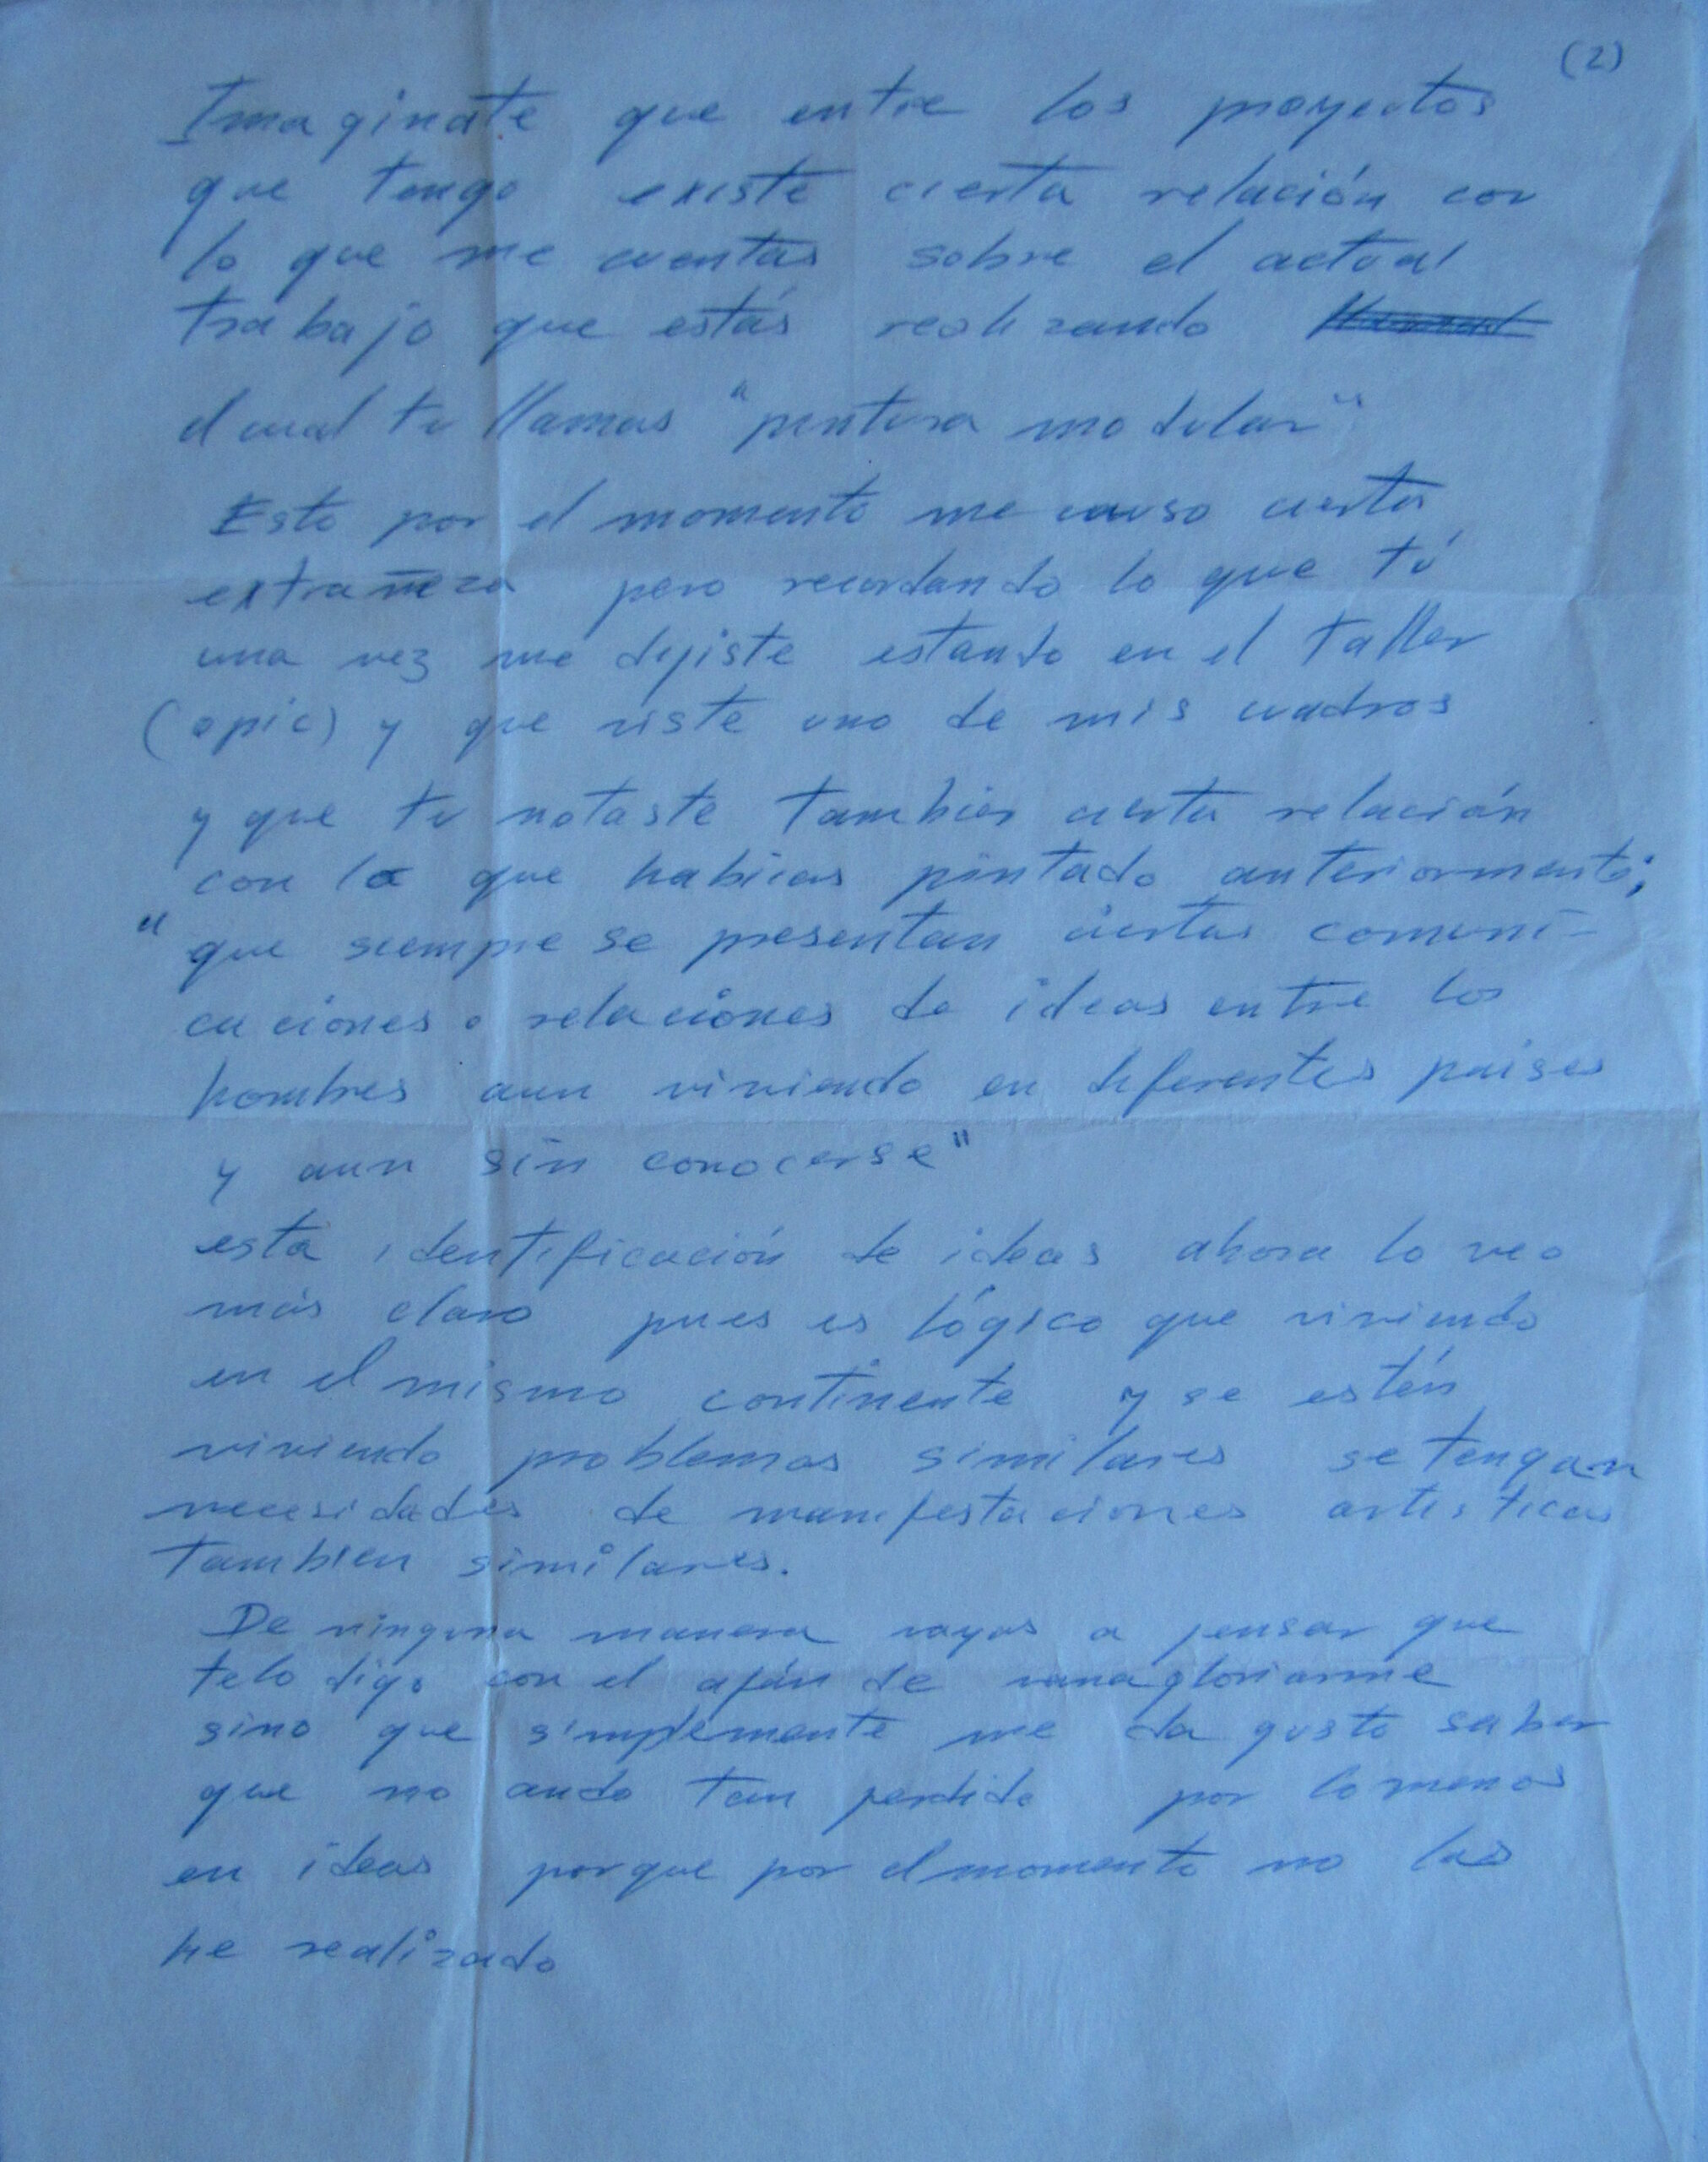 (2)
Imaginate que entre los proyectos
que tengo existe cierta relación con
lo que me cuentas sobre el actual
trabajo que estás realizando
el cual tu llamas "pintura modular"
Esto por el momento me causo cierta
extrañeza pero recordando lo que tú
una vez me dijiste estando en el taller
(opic) y que viste uno de mis cuadros
y que tu notaste tambien cierta relación
con lo que habias pintado anteriormente;
"que siempre se presentan ciertas comuni-
caciones o relaciones de ideas entre los
hombres aun viviendo en diferentes paises
y aun sin conocerse"
esta identificación de ideas ahora lo veo
más claro pues es lógico que viviendo
en el mismo continente y se estén
viviendo problemas similares se tengan
necesidades de manifestaciones artisticas
tambien similares.
De ninguna manera vayas a pensar que
telo digo con el afán de vanagloriarme
sino que simplemente me da gusto saber
que no ando tan perdido por lo menos
en ideas porque por el momento no las
he realizado